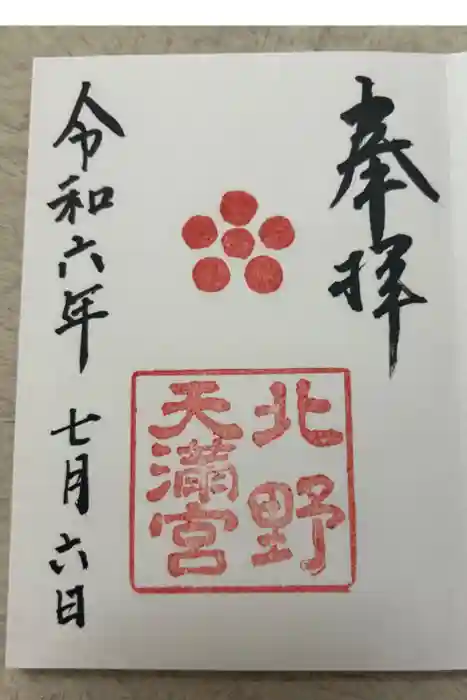 奉拝
北野
天満宮
令和六年 七月六日